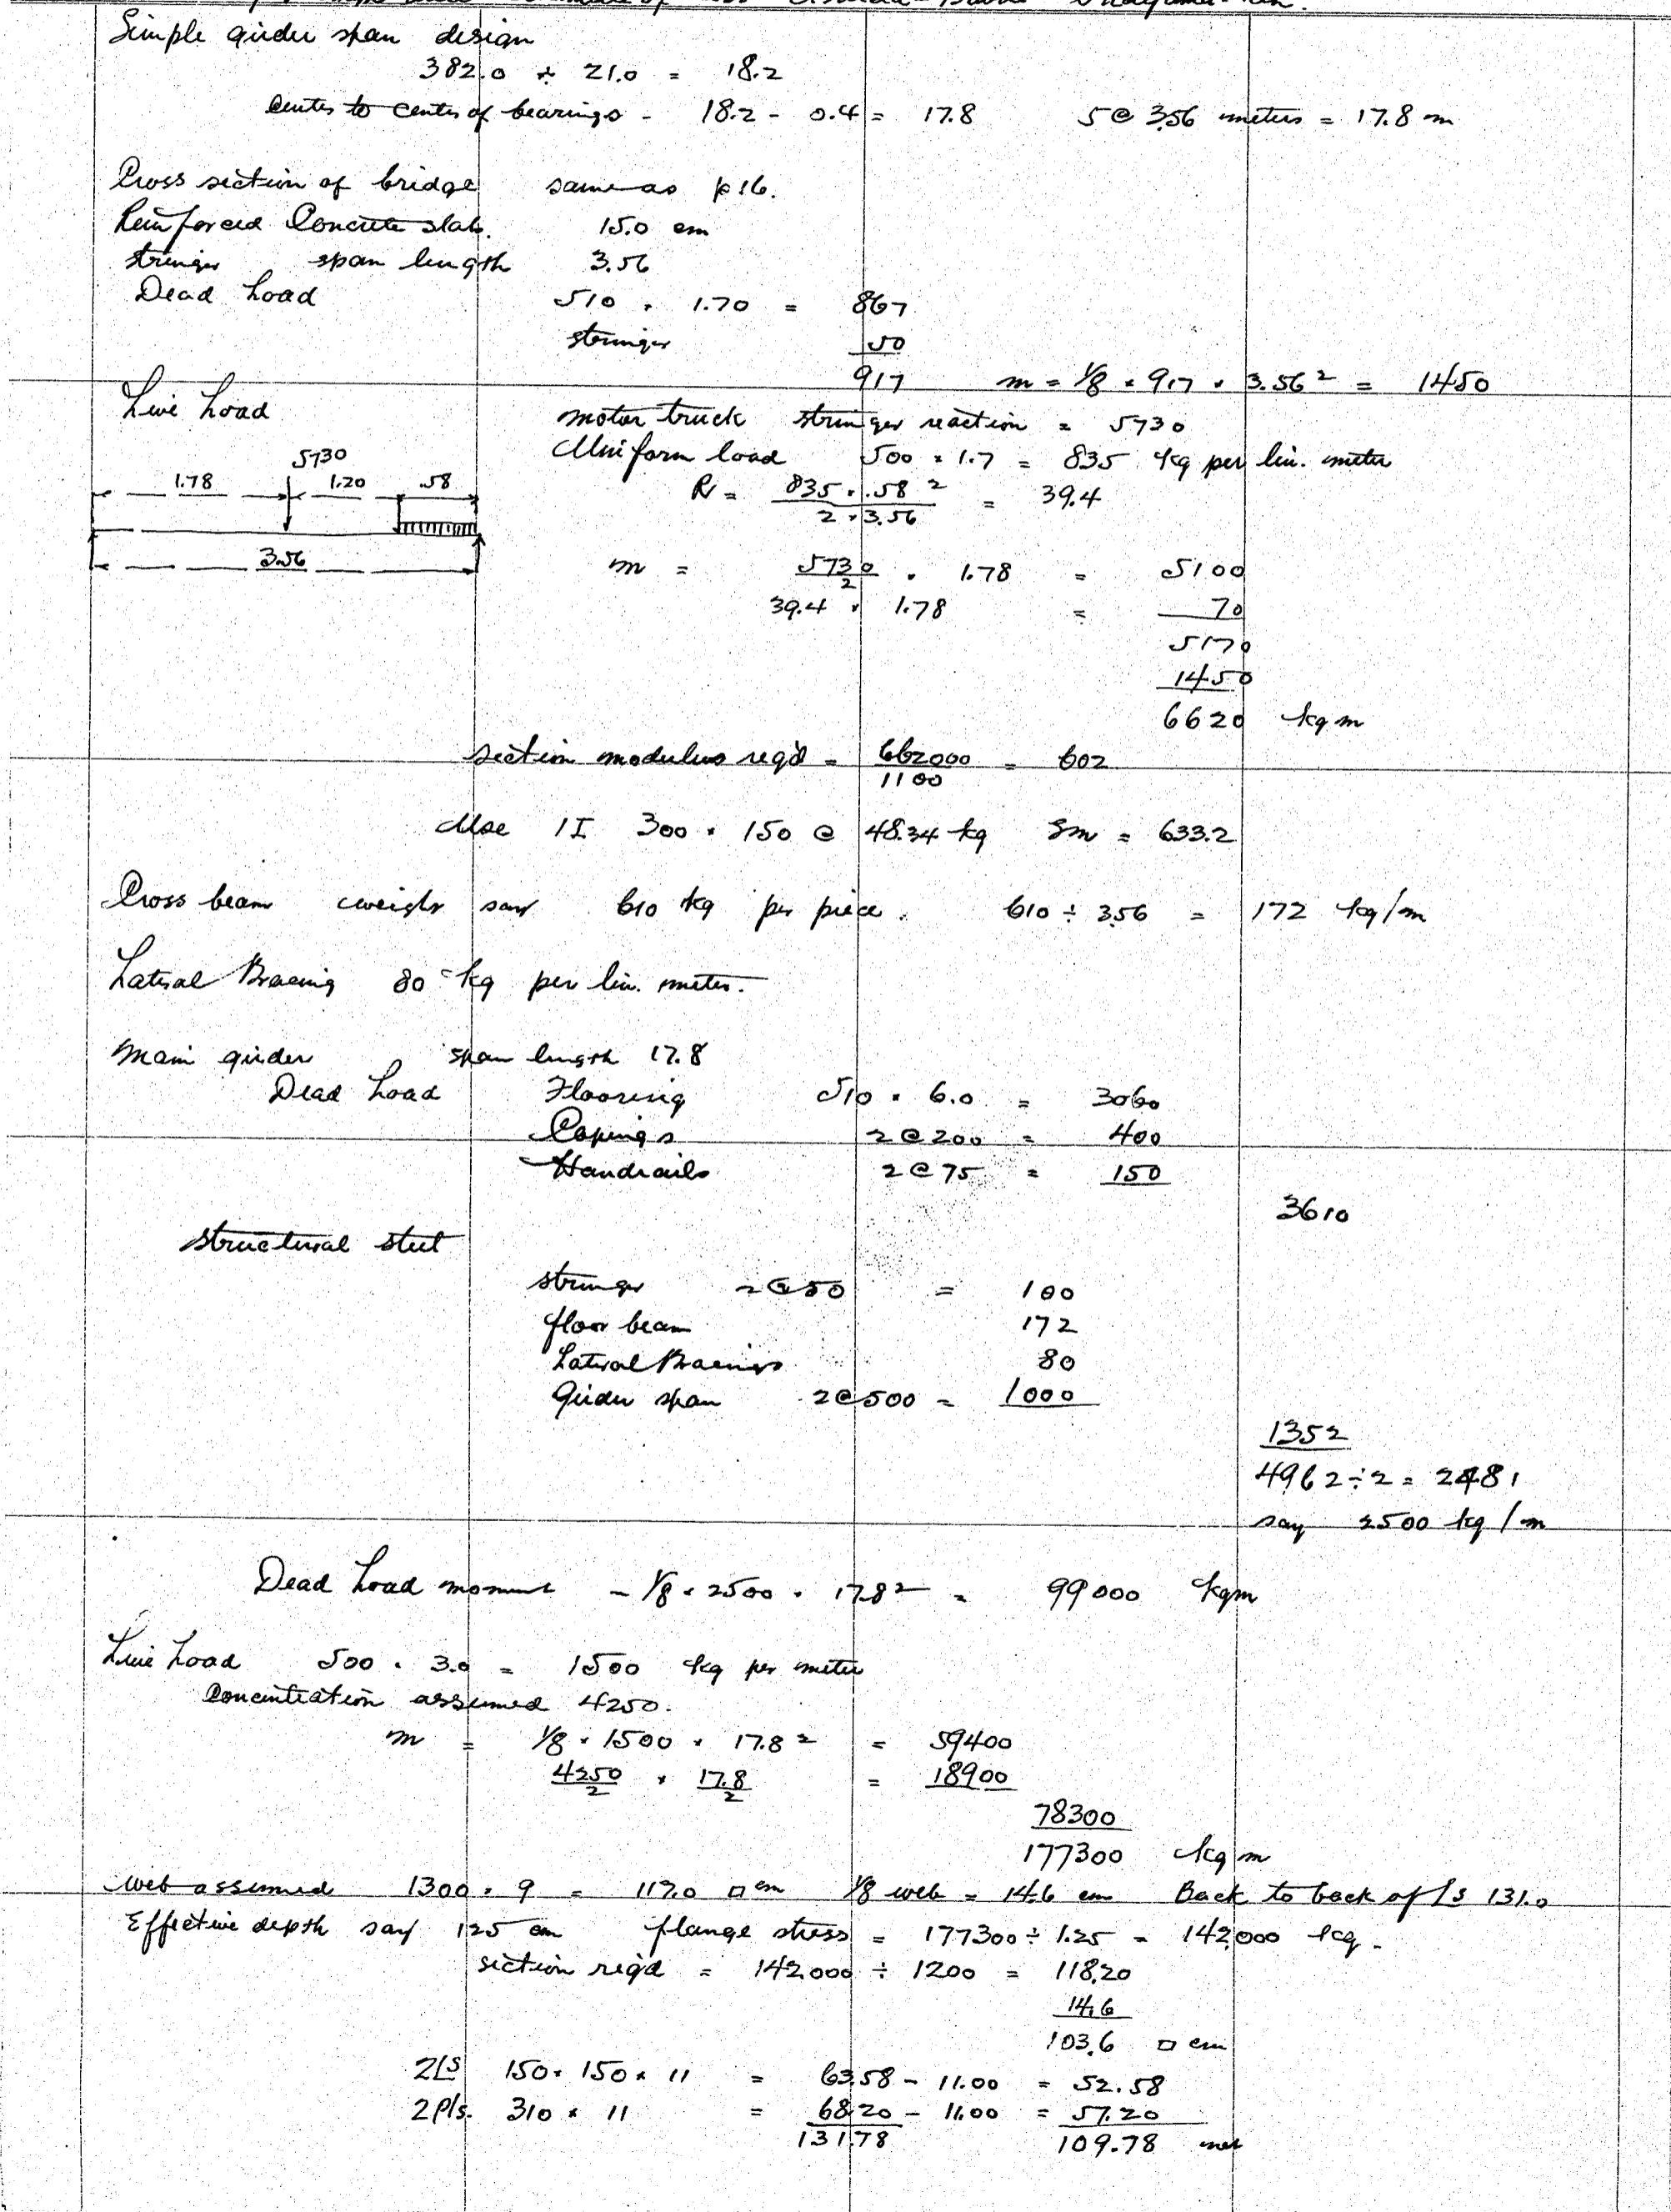 Simple girder span design
382.0 ÷ 21.0 = 18.2
Center to center of bearings - 18.2 - 0.4 = 17.8 5 @ 3.56 meters = 17.8 m
Cross section of bridge same as p16.
Reinforced Concrete slab. 15.0 cm
stringer span length 3.56
Dead Load 510 × 1.70 = 867
stringer 50
917 m = 1/8 × 917 × 3.56² = 1450
Live Load
motor truck stringer reaction = 5730
Uniform load 500 × 1.7 = 835 kg per lin. meter
5730
1.78 1.20 .58
3.56
R = 835 × .58² / 2 × 3.56 = 39.4
m = 5730/2 × 1.78 = 5100
39.4 × 1.78 = 70
5170
1450
6620 kgm
section modulus reqd = 662000/1100 = 602
Use 1 I 300 × 150 @ 48.34 kg Sm = 633.2
Cross beam weight say 610 kg per piece. 610 ÷ 3.56 = 172 kg/m
Lateral Bracing 80 kg per lin. meter.
Main girder span length 17.8
Dead Load Flooring 510 × 6.0 = 3060
Copings 2 @ 200 = 400
Handrails 2 @ 75 = 150
3610
Structural steel
stringer 2 @ 50 = 100
floor beam 172
Lateral Bracings 80
Girder span 2 @ 500 = 1000
1352
4962 ÷ 2 = 2481
say 2500 kg/m
Dead Load moment - 1/8 × 2500 × 17.8² = 99000 kgm
Live Load 500 × 3.0 = 1500 kg per meter
Concentration assumed 4250.
m = 1/8 × 1500 × 17.8² = 59400
4250/2 × 17.8/2 = 18900
78300
177300 kgm
web assumed 1300 × 9 = 117.0 □ cm 1/8 web = 14.6 cm Back to back of Ls 131.0
Effective depth say 125 cm flange stress = 177300 ÷ 1.25 = 142,000 kg.
section reqd = 142,000 ÷ 1200 = 118.20
14.6
103.6 □ cm
2Ls 150 × 150 × 11 = 63.58 - 11.00 = 52.58
2Pls. 310 × 11 = 68.20 - 11.00 = 57.20
131.78 109.78 net